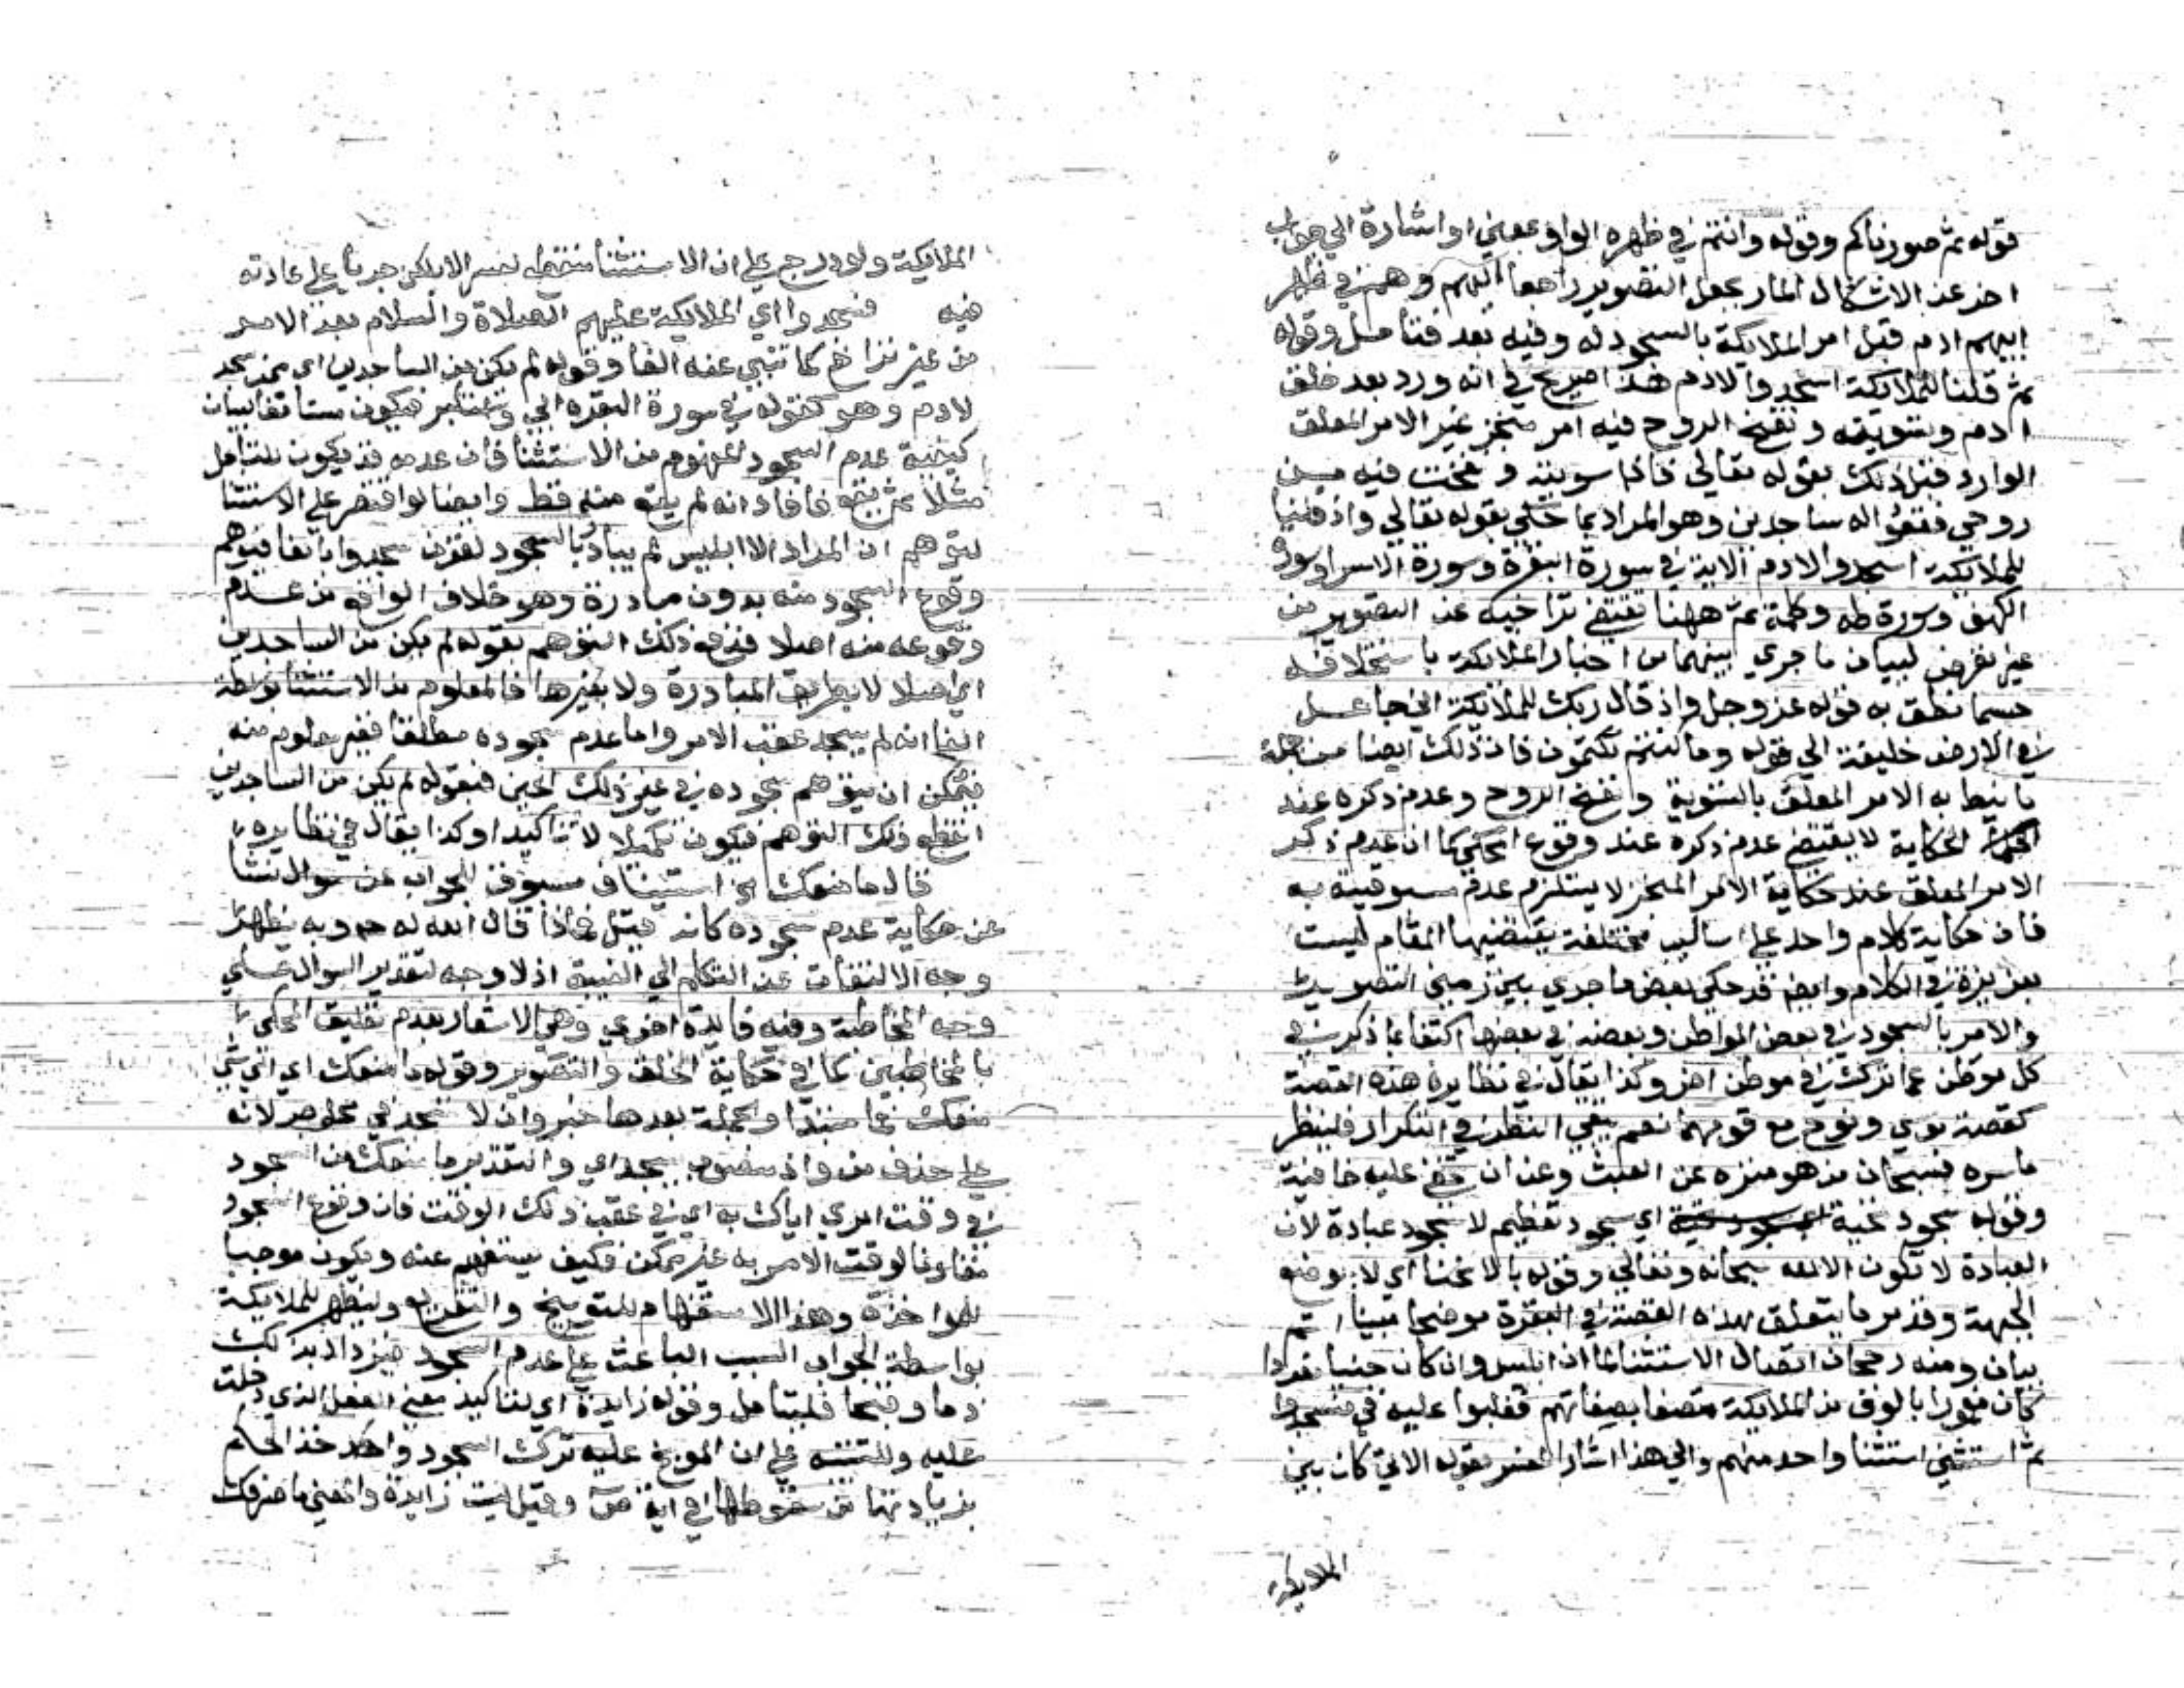 قوله ثم صورناكم وقوله وانتم في ظهره الواو بمعني او اشارة الي جواب
اخر عن الاشكال المار بجعل التصوير راجعا اليهم وهم في ظهر
ابيهم ادم قبل امر الملايكة بالسجود له وفيه بعد فتامل وقوله
ثم قلنا للملايكة اسجدوا لادم هذا صريح في انه ورد بعد خلق
ادم وتسويته ونفخ الروح فيه امر منجز غير الامر المعلق
الوارد قبل ذلك بقوله تعالي فاذا سويته ونفخت فيه من
روحي فقعوا له ساجدين وهو المراد بما حكي بقوله تعالي واذ قلنا
للملايكة اسجدوا لادم الاية في سورة البقرة وسورة الاسرا وسورة
الكهف وسورة طه وكلمة ثم ههنا تقتضي تراخيه عن التصوير من
غير تعرض لبيان ما جري بينهما من اخبار الملايكة باستخلافه
حسما نطق به قوله عز وجل واذ قال ربك للملايكة اني جاعل
في الارض خليفة الي قوله وما كنتم تكتمون فان ذلك ايضا من جملة
ما نيط به الامر المعلق بالتسوية ونفخ الروح وعدم ذكره عند
الحكاية لا يقتضي عدم ذكره عند وقوع المحكي كما ان عدم ذكر
الامر المعلق عند حكاية الامر المنجز لا يستلزم عدم مسبوقيته به
فان حكاية كلام واحد علي اساليب مختلفة يقتضيها المقام ليست
بعزيزة في الكلام وايضا قد حكي بعض ما جري بين زمني التصوير
والامر بالسجود في بعض المواطن وبعضه في بعضها اكتفا بما ذكر في
كل موطن عما ترك في موطن اخر وكذا يقال في نظاير هذه القصة
كقصة موسي ونوح مع قومهما نعم يبقي النظر في التكرار فلينظر
ما سره فسبحان من هو منزه عن العبث وعن ان تخفي عليه خافية
وقوله سجود تحية اي سجود تعظيم لا سجود عبادة لان
العبادة لا تكون الا لله سبحانه وتعالي وقوله بالانحنا اي لا بوضع
الجبهة وقد مر ما يتعلق بهذه القصة في البقرة موضحا مبينا اتم
بيان ومنه رجحان اتصال الاستثنا لما ان ابليس وان كان جنيا مفردا
كان مغمورا بالوف من الملايكة متصفا بصفاتهم فغلبوا عليه في فسجدوا
ثم استثني استثنا واحد منهم والي هذا اشار المفسر بقوله الاتي كان بين
الملايكة
الملايكة ولو درج علي ان الاستثنا منقطع لفسر الا بلكن جريا علي عادته
فيه فسجدوا اي الملايكة عليهم الصلاة والسلام بعد الامر
من غير تراخ كما تنبي عنه الفا وقوله لم يكن من الساجدين اي ممن سجد
لادم وهو كقوله في سورة البقرة ابي واستكبر فيكون مستانفا لبيان
كيفية عدم السجود المفهوم من الاستثنا فان عدمه قد يكون للتامل
مثلا ثم يقع فافاد انه لم يقع منه قط وايضا لو اقتصر علي الاستثنا
لتوهم ان المراد الا ابليس لم يبادر بالسجود لقرن سجدوا بالفا فيوهم
وقوع السجود منه بدون مبادرة وهو خلاف الواقع من عدم
وقوعه منه اصلا فدفع ذلك التوهم بقوله لم يكن من الساجدين
اي اصلا لا بطريق المبادرة ولا بغيرها فالمعلوم من الاستثنا بواسطة
الفا انه لم يسجد عقب الامر واما عدم سجوده مطلقا فغير معلوم منه
فيمكن ان يتوهم سجوده في غير ذلك الحين فبقوله لم يكن من الساجدين
انقطع ذلك التوهم فيكون تكميلا لا تاكيدا وكذا يقال في نظايره
قال ما منعك الخ استيناف مسوق للجواب عن سوال نشا
عن حكاية عدم سجوده كانه قيل فماذا قال الله له ح وبه يظهر
وجه الالتفات عن التكلم الي الغيبة اذ لا وجه لتقدير السوال علي
وجه المخاطبة وفيه فايدة اخري وهي الاشعار بعدم تعليق المحكي
بالمخاطبين كما في حكاية الخلق والتصوير وقوله ما منعك اي اي شي
منعك فما مبتدا والجملة بعدها خبر وان لا تسجد في محل جر لانه
علي حذف من واذ منصوب بتسجد اي والتقدير ما منعك من السجود
في وقت امري اياك به اي في عقب ذلك الوقت فان وقوع السجود
مقارنا لوقت الامر به غير ممكن فكيف يستفهم عنه ويكون موجبا
للمواخذة وهذا الاستفهام للتوبيخ والتقريع وليظهر للملايكة
بواسطة الجواب السبب الباعث علي عدم السجود فيزداد بذلك
ذما وقبحا فليتامل وقوله زايدة اي لتاكيد معني الفعل الذي دخلت
عليه وللتنبيه علي ان الموبخ عليه ترك السجود
بزيادتها من سقوطها في اية ص وقيل ليست زايدة والمعني ما صرفك